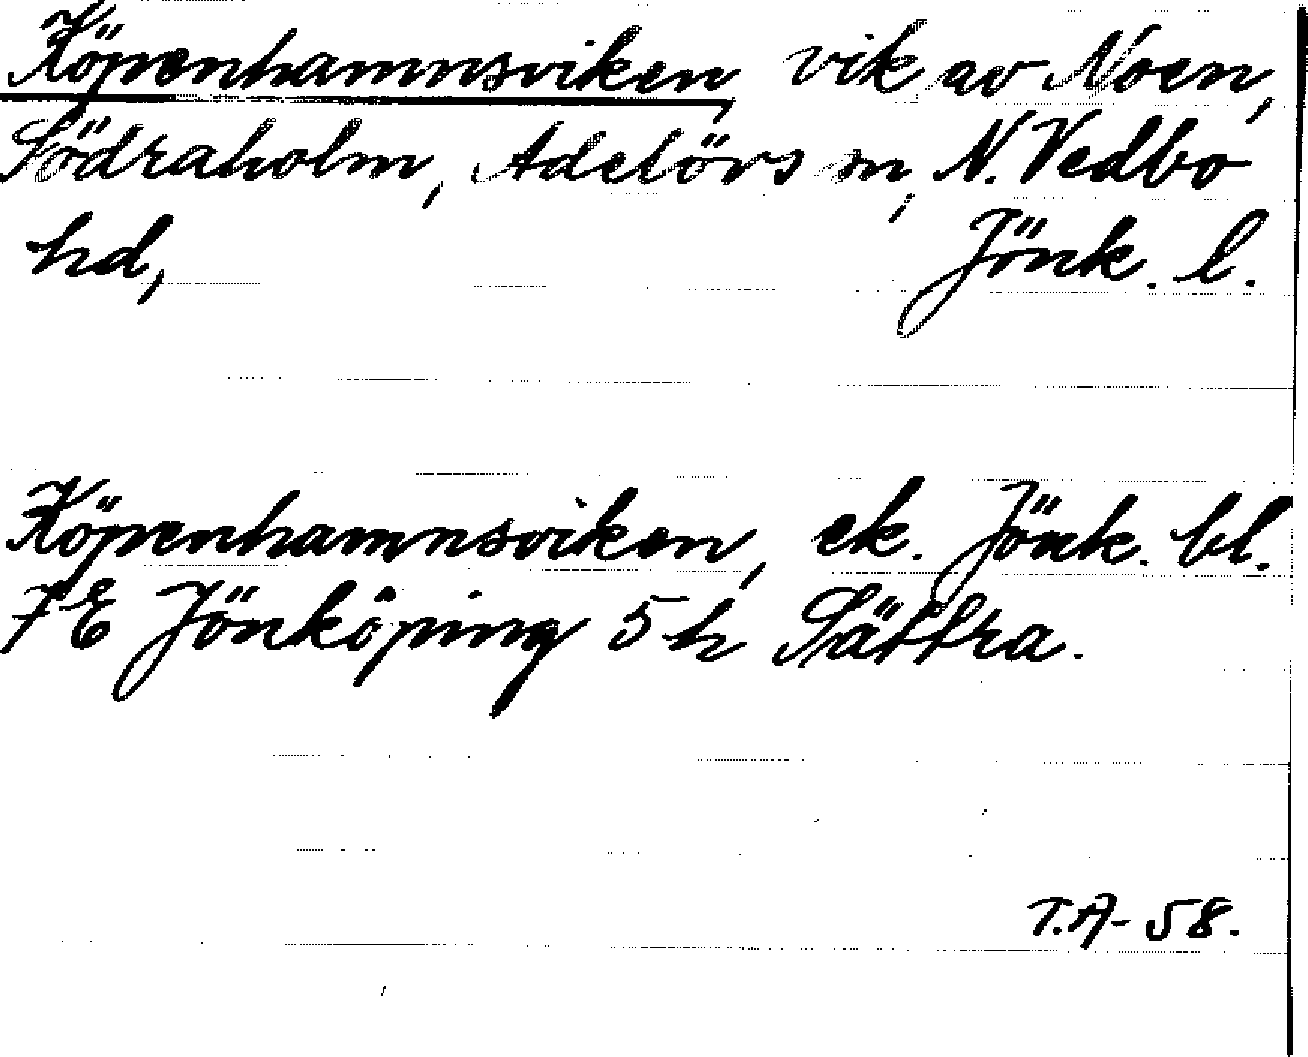 Köpenhamnsviken, vik av Noen,
Södraholm, Adelövs sn, N. Vedbo
hd, Jönk. l.
Köpenhamnsviken, ek. Jönk. bl.
7E Jönköping 5h Sättra.
T.A-58.